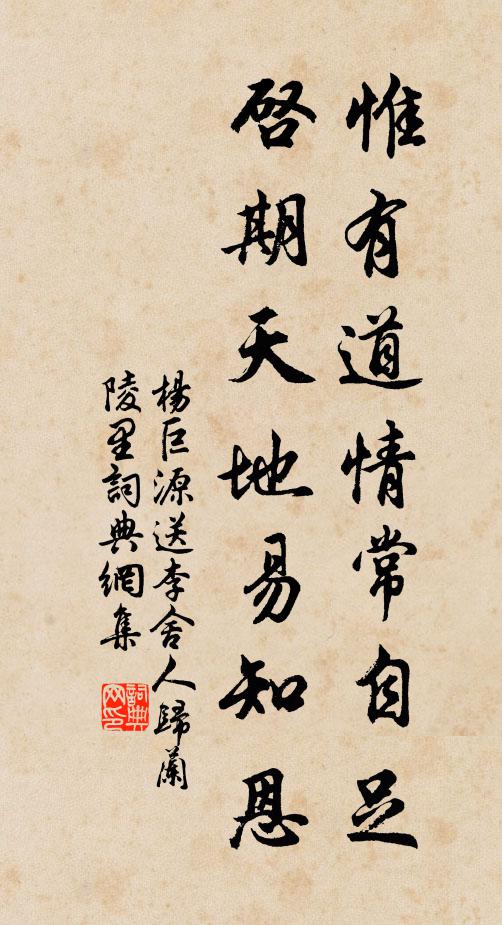 惟有道情常自足
啓期天地易知恩
楊巨源送李舍人歸蘭
陵里詞典網集
詞典
网印